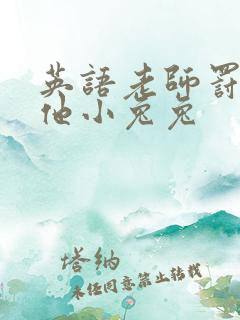 英語老師罰
他小兔兔
塔納
未经同意禁止转载